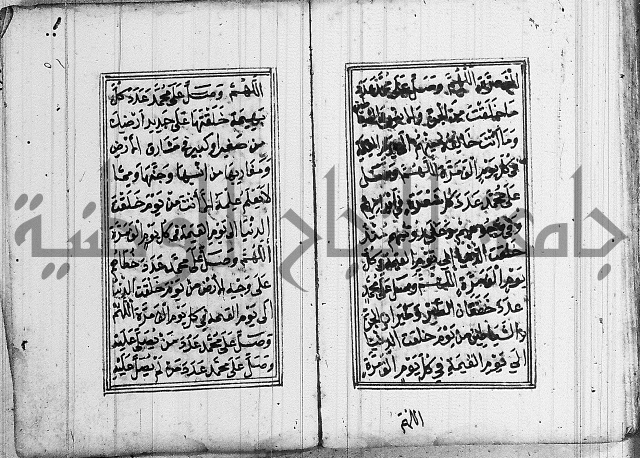 المغفرة اللهم وصل على محمد عدد
ما خلقت من الجن والانس
وما انت خالقه
في كل يوم الف مرة اللهم وصل
على محمد عدد كل شعرة في ابدانهم
وفي وجوههم وعلى رؤسهم منذ
خلقت الدنيا الى يوم القيمة في كل
يوم الف مرة اللهم وصل على محمد
عدد خفقان الطير وطيران الجن
والشياطين من يوم خلقت الدنيا
الى يوم القيمة في كل يوم الف مرة
اللهم
اللهم وصل على محمد عدد كل
بهيمة خلقتها على جديد ارضك
من صغير او كبير في مشارق الارض
ومغاربها من انسها وجنها ومما
لا يعلم علمه الا انت من يوم خلقت
الدنيا الى يوم القيمة في كل يوم الف مرة
اللهم وصل على محمد عدد خطاهم
على وجه الارض من يوم خلقت الدنيا
الى يوم القيمة في كل يوم الف مرة اللهم
وصل على محمد عدد من يصلي عليه
وصل على محمد عدد من لم يصل عليه
جامعة النجاح الوطنية